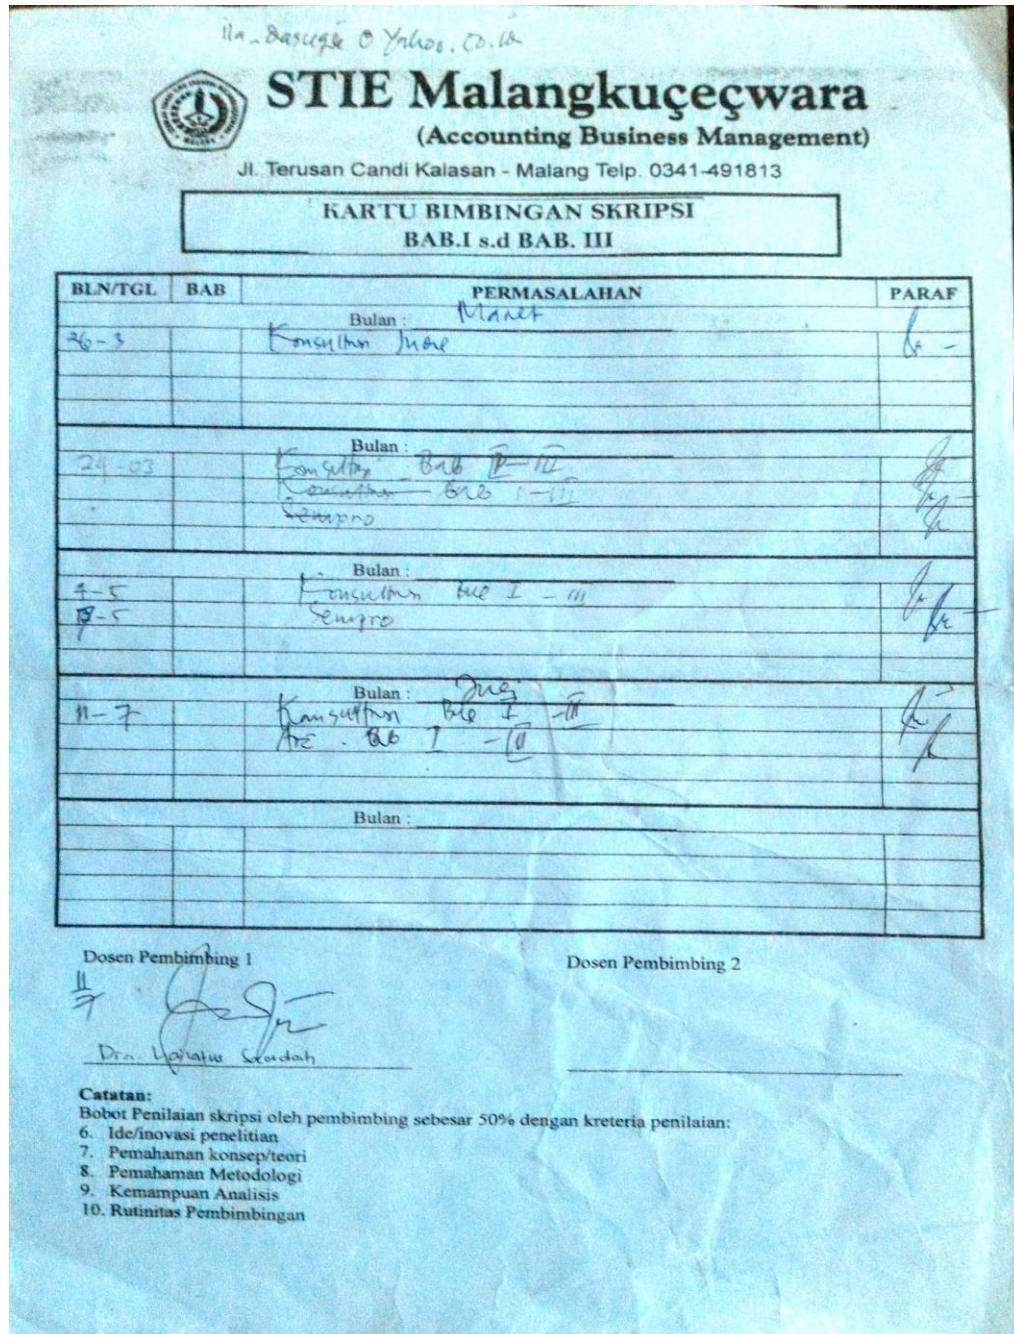 STIE Malangkuçeçwara
(Accounting Business Management)
Jl. Terusan Candi Kalasan - Malang Telp. 0341-491813
KARTU BIMBINGAN SKRIPSI
BAB.I s.d BAB. III
BLN/TGL BAB PERMASALAHAN PARAF
Bulan : Maret
26-3 Konsultasi
Bulan :
24-03 Konsultasi Bab II-III
Konsultasi Bab I-III
Sempro
Bulan :
4-5 Konsultasi Bab I-III
-5 Sempro
Bulan : Juli
11-7 Konsultasi Bab I-III
Acc. Bab I-III
Bulan :
Dosen Pembimbing 1 Dosen Pembimbing 2
11/7
Dra. Saadah
Catatan:
Bobot Penilaian skripsi oleh pembimbing sebesar 50% dengan kreteria penilaian:
6. Ide/inovasi penelitian
7. Pemahaman konsep/teori
8. Pemahaman Metodologi
9. Kemampuan Analisis
10. Rutinitas Pembimbingan